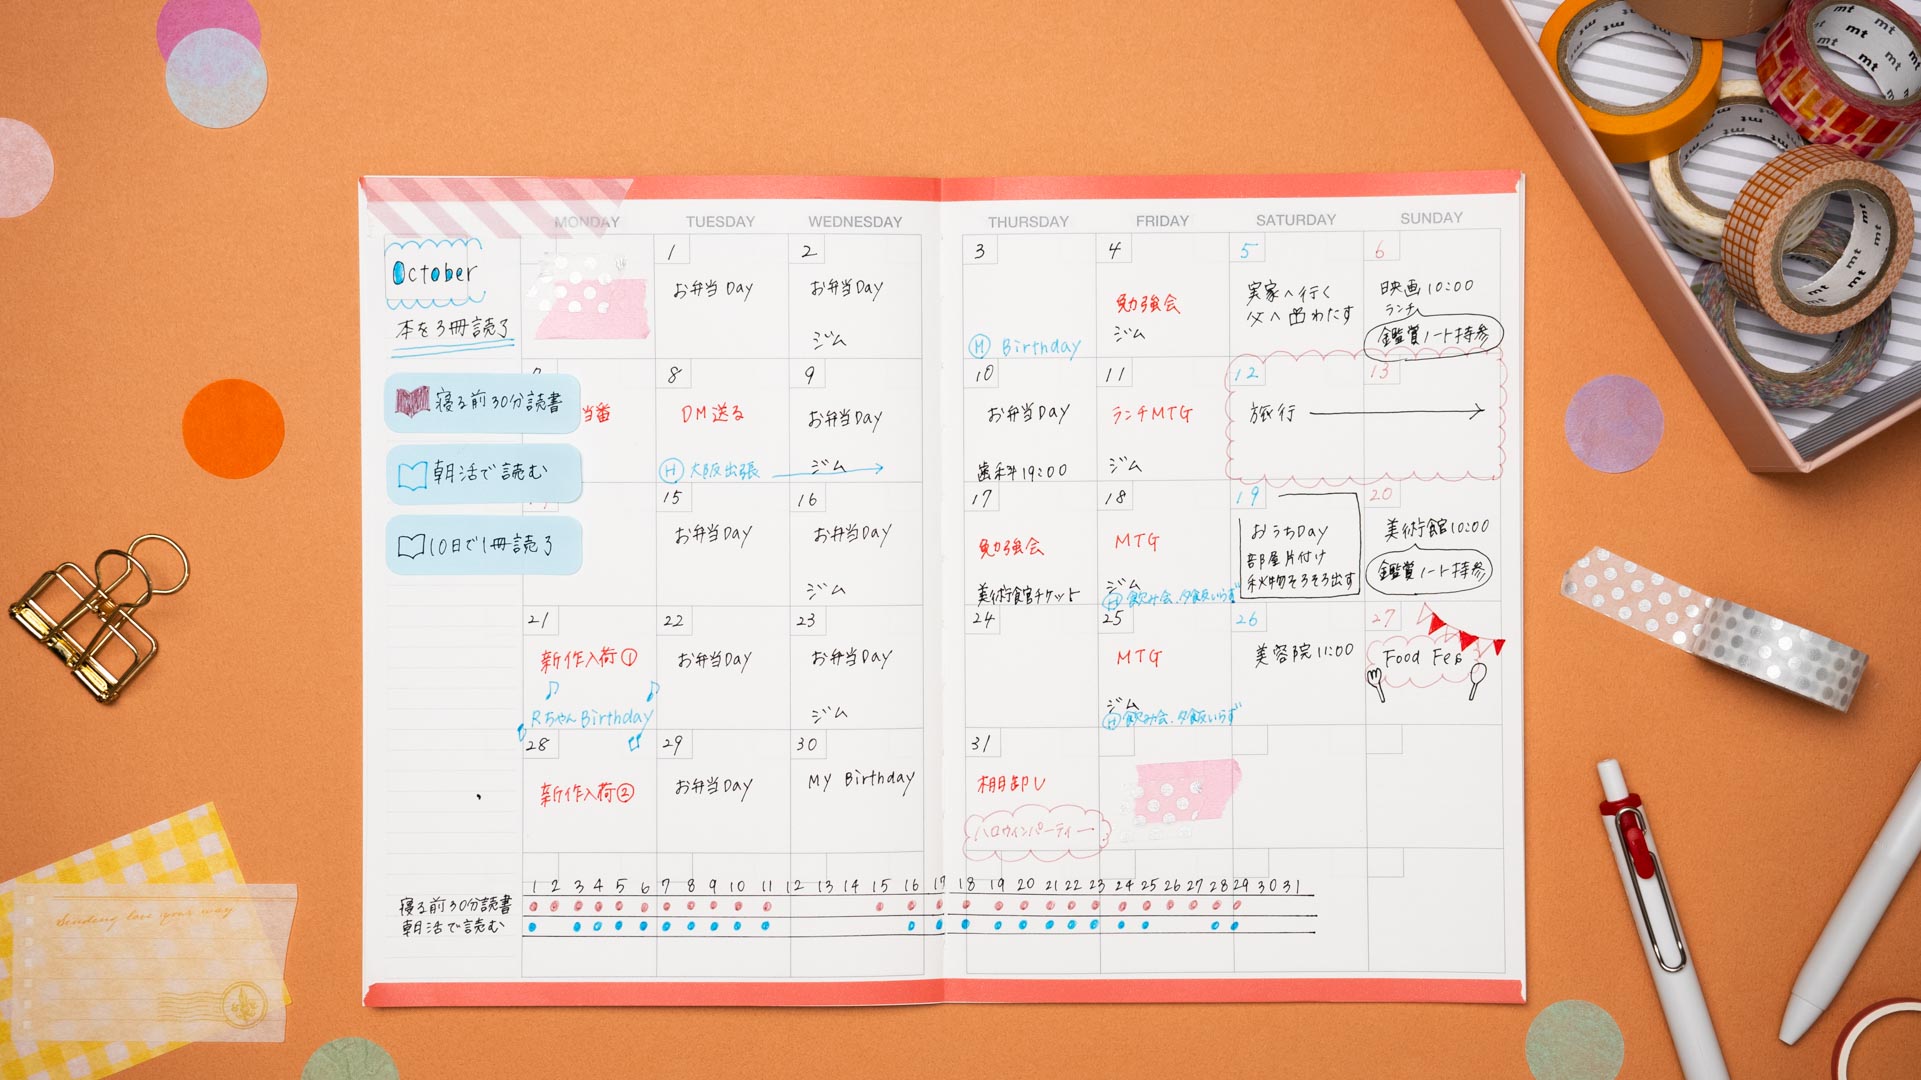 MONDAY TUESDAY WEDNESDAY THURSDAY FRIDAY SATURDAY SUNDAY
October
本を3冊読了
寝る前30分読書
朝活で読む
10日で1冊読了
1
お弁当Day
2
お弁当Day
ジム
3
H Birthday
4
勉強会
ジム
5
実家へ行く
父へ わたす
6
映画10:00
ランチ
鑑賞ノート持参
7
当番
8
DM送る
H 大阪出張
9
お弁当Day
ジム
10
お弁当Day
歯科19:00
11
ランチMTG
ジム
12
旅行
13
15
お弁当Day
16
お弁当Day
ジム
17
勉強会
美術館チケット
18
MTG
ジム
H 飲み会、夕飯いらず
19
おうちDay
部屋片付け
秋物そろそろ出す
20
美術館10:00
鑑賞ノート持参
21
新作入荷①
Rちゃん Birthday
22
お弁当Day
23
お弁当Day
ジム
24
25
MTG
ジム
H 飲み会、夕飯いらず
26
美容院11:00
27
Food Fes
28
新作入荷②
29
お弁当Day
30
My Birthday
31
棚卸し
ハロウィンパーティー
1 2 3 4 5 6 7 8 9 10 11 12 13 14 15 16 17 18 19 20 21 22 23 24 25 26 27 28 29 30 31
寝る前30分読書
朝活で読む
Sending love your way
mt
mt
mt
mt
mt
mt